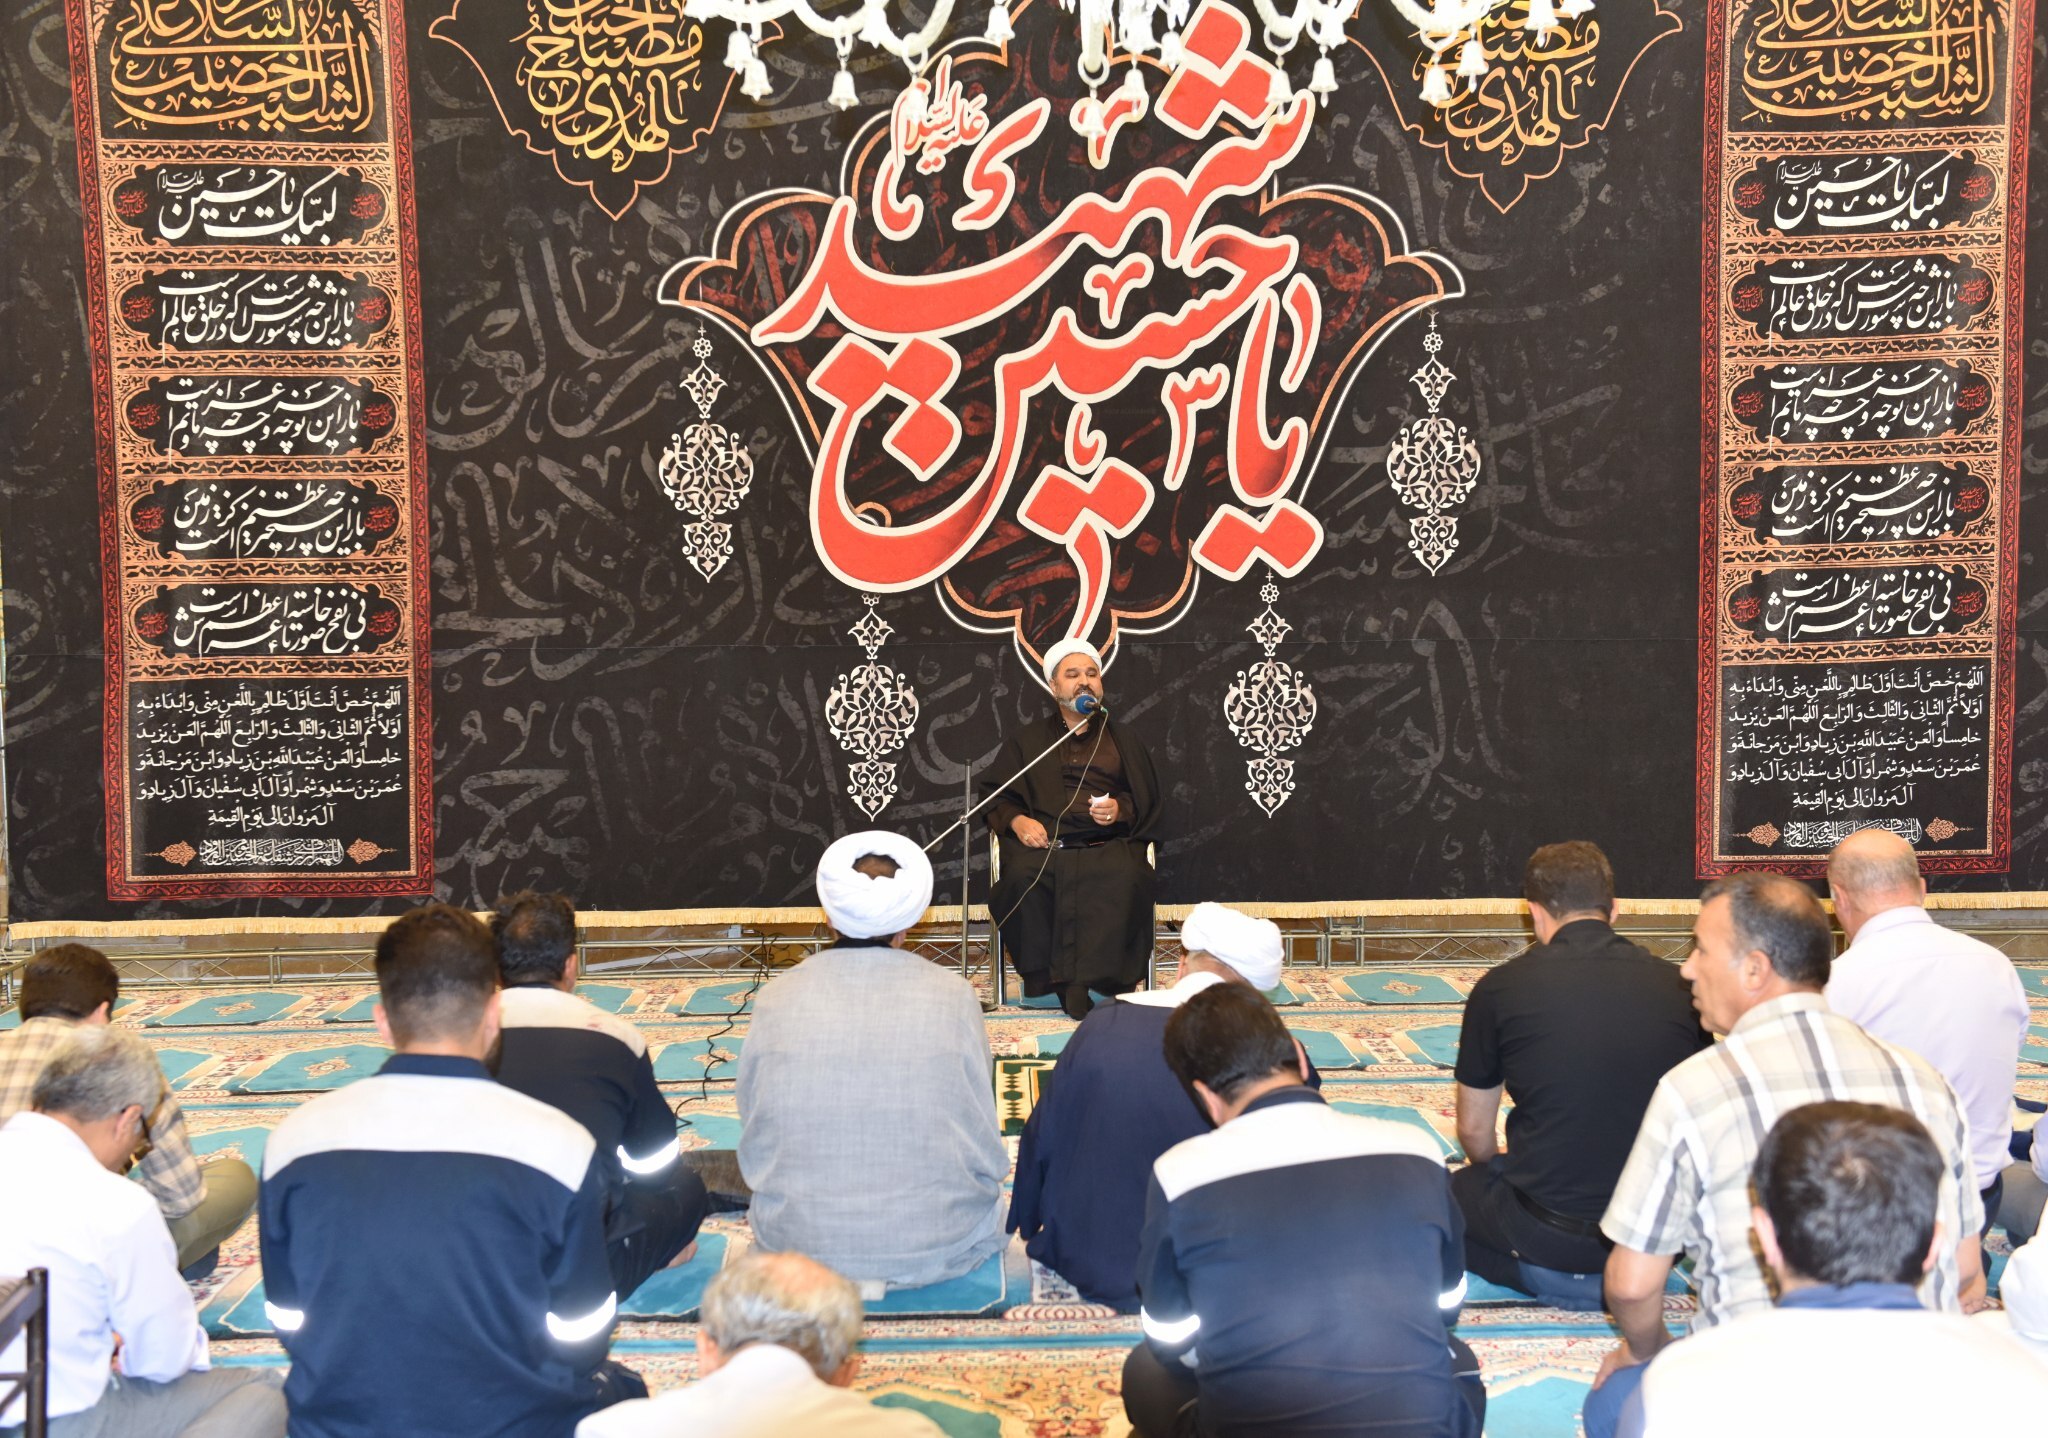 السلام علی
الشیب الخضیب
مصباح
الهدی
یا حسین شهید
علیه السلام
مصباح
الهدی
السلام علی
الشیب الخضیب
لبیک یا حسین
علیه السلام
باز این چه شورش است که در خلق عالم است
باز این چه نوحه و چه عزا و چه ماتم است
باز این چه رستخیز عظیم است کز زمین
بی نفخ صور خاسته تا عرش اعظم است
اَللّهُمَّ خُصَّ اَنْتَ اَوَّلَ ظالِمٍ بِاللَّعْنِ مِنّی وَابْدَاءْ بِهِ
اَوَّلاً ثُمَّ الثّانِیَ وَالثّالِثَ وَالرّابِعَ اَللّهُمَّ الْعَنْ یَزیدَ
خامِساً وَالْعَنْ عُبَیْدَاللَّهِ بْنَ زِیادٍ وَابْنَ مَرْجانَةَ وَ
عُمَرَ بْنَ سَعْدٍ وَ شِمْراً وَ آلَ اَبی سُفْیانَ وَ آلَ زِیادٍ وَ
آلَ مَرْوانَ اِلی یَوْمِ الْقِیمَةِ
لبیک یا حسین
علیه السلام
باز این چه شورش است که در خلق عالم است
باز این چه نوحه و چه عزا و چه ماتم است
باز این چه رستخیز عظیم است کز زمین
بی نفخ صور خاسته تا عرش اعظم است
اَللّهُمَّ خُصَّ اَنْتَ اَوَّلَ ظالِمٍ بِاللَّعْنِ مِنّی وَابْدَاءْ بِهِ
اَوَّلاً ثُمَّ الثّانِیَ وَالثّالِثَ وَالرّابِعَ اَللّهُمَّ الْعَنْ یَزیدَ
خامِساً وَالْعَنْ عُبَیْدَاللَّهِ بْنَ زِیادٍ وَابْنَ مَرْجانَةَ وَ
عُمَرَ بْنَ سَعْدٍ وَ شِمْراً وَ آلَ اَبی سُفْیانَ وَ آلَ زِیادٍ وَ
آلَ مَرْوانَ اِلی یَوْمِ الْقِیمَةِ